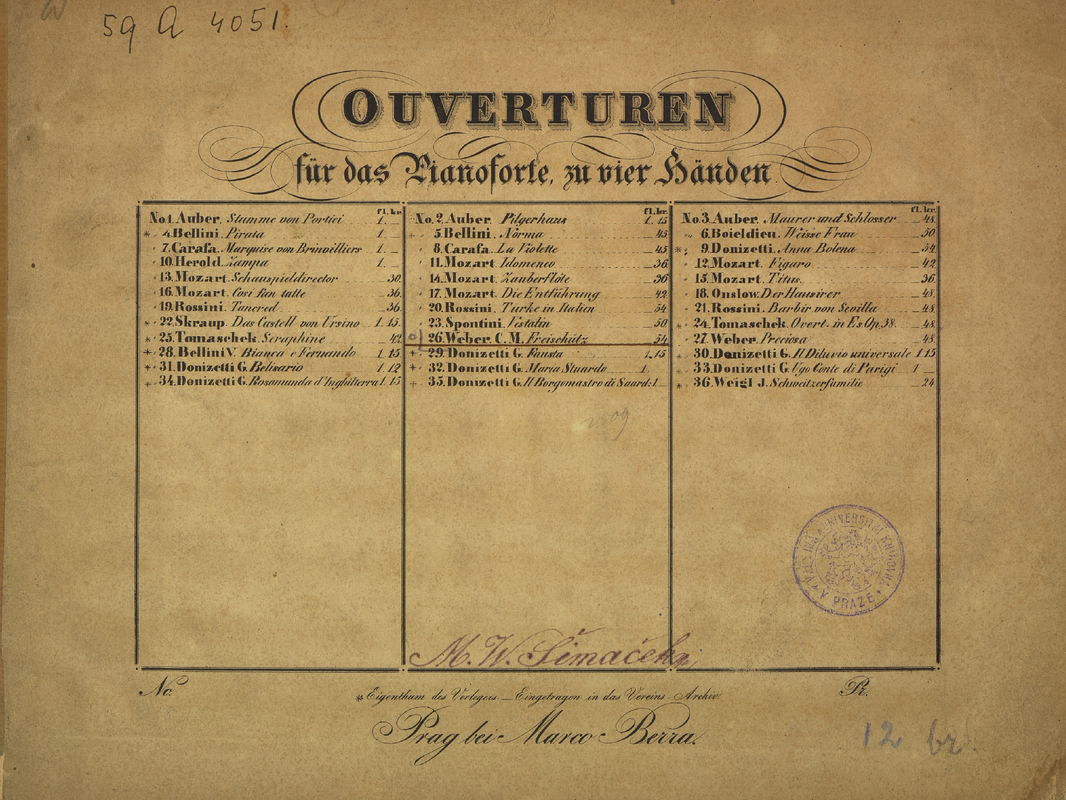 59 A 4051.
OUVERTUREN
für das Pianoforte, zu vier Händen.
fl. kr.
No 1. Auber. Stumme von Portici 1. _
* 4. Bellini. Pirata 1. _
" 7. Carafa. Marquise von Brinvilliers 1. _
" 10. Herold. Zampa 1. _
" 13. Mozart. Schauspieldirector 30.
" 16. Mozart. Cosi fan tutte 36.
" 19. Rossini. Tancred 36.
* 22. Skraup. Das Castell von Ursino 1. 15.
* 25. Tomaschek. Seraphine 42
* 28. Bellini V. Bianca e Fernando 1. 15
* 31. Donizetti G. Belisario 1. 12
* 34. Donizetti G. Rosamunda d'Inghilterra 1. 15
fl. kr.
No. 2. Auber. Pilgerhaus 1. 15
" 5. Bellini. Norma 45
" 8. Carafa. La Violette 45
" 11. Mozart. Idomeneo 36
" 14. Mozart. Zauberflöte 36
" 17. Mozart. Die Entführung 42
" 20. Rossini. Türke in Italien 54
" 23. Spontini. Vestalin 50
26. Weber C. M. Freischütz 54
* 29. Donizetti G. Fausta 1. 15
* 32. Donizetti G. Maria Stuarda 1.
" 35. Donizetti G. Il Borgomastro di Saard: 1 _
fl. kr.
No. 3. Auber. Maurer und Schlosser 48.
" 6. Boieldieu. Weisse Frau 50
* 9. Donizetti. Anna Bolena 54
" 12. Mozart. Figaro 42
" 15. Mozart. Titus 36
" 18. Onslow. Der Hausirer 48.
" 21. Rossini. Barbir von Sevilla 48.
* 24. Tomaschek. Overt. in Es Op. 38. 48.
" 27. Weber. Preciosa 48.
* 30. Donizetti G. Il Diluvio universale 1 15
* 33. Donizetti G. Ugo Conte di Parigi 1 _
* 36. Weigl J. Schweitzerfamilie 24
UNIVERSITNÍ KNIHOVNA
V PRAZE
M. W. Šimáček
No.
Eigenthum des Verlegers. _ Eingetragen in das Vereins-Archiv.
Pr.
Prag bei Marco Berra.
12 kr.